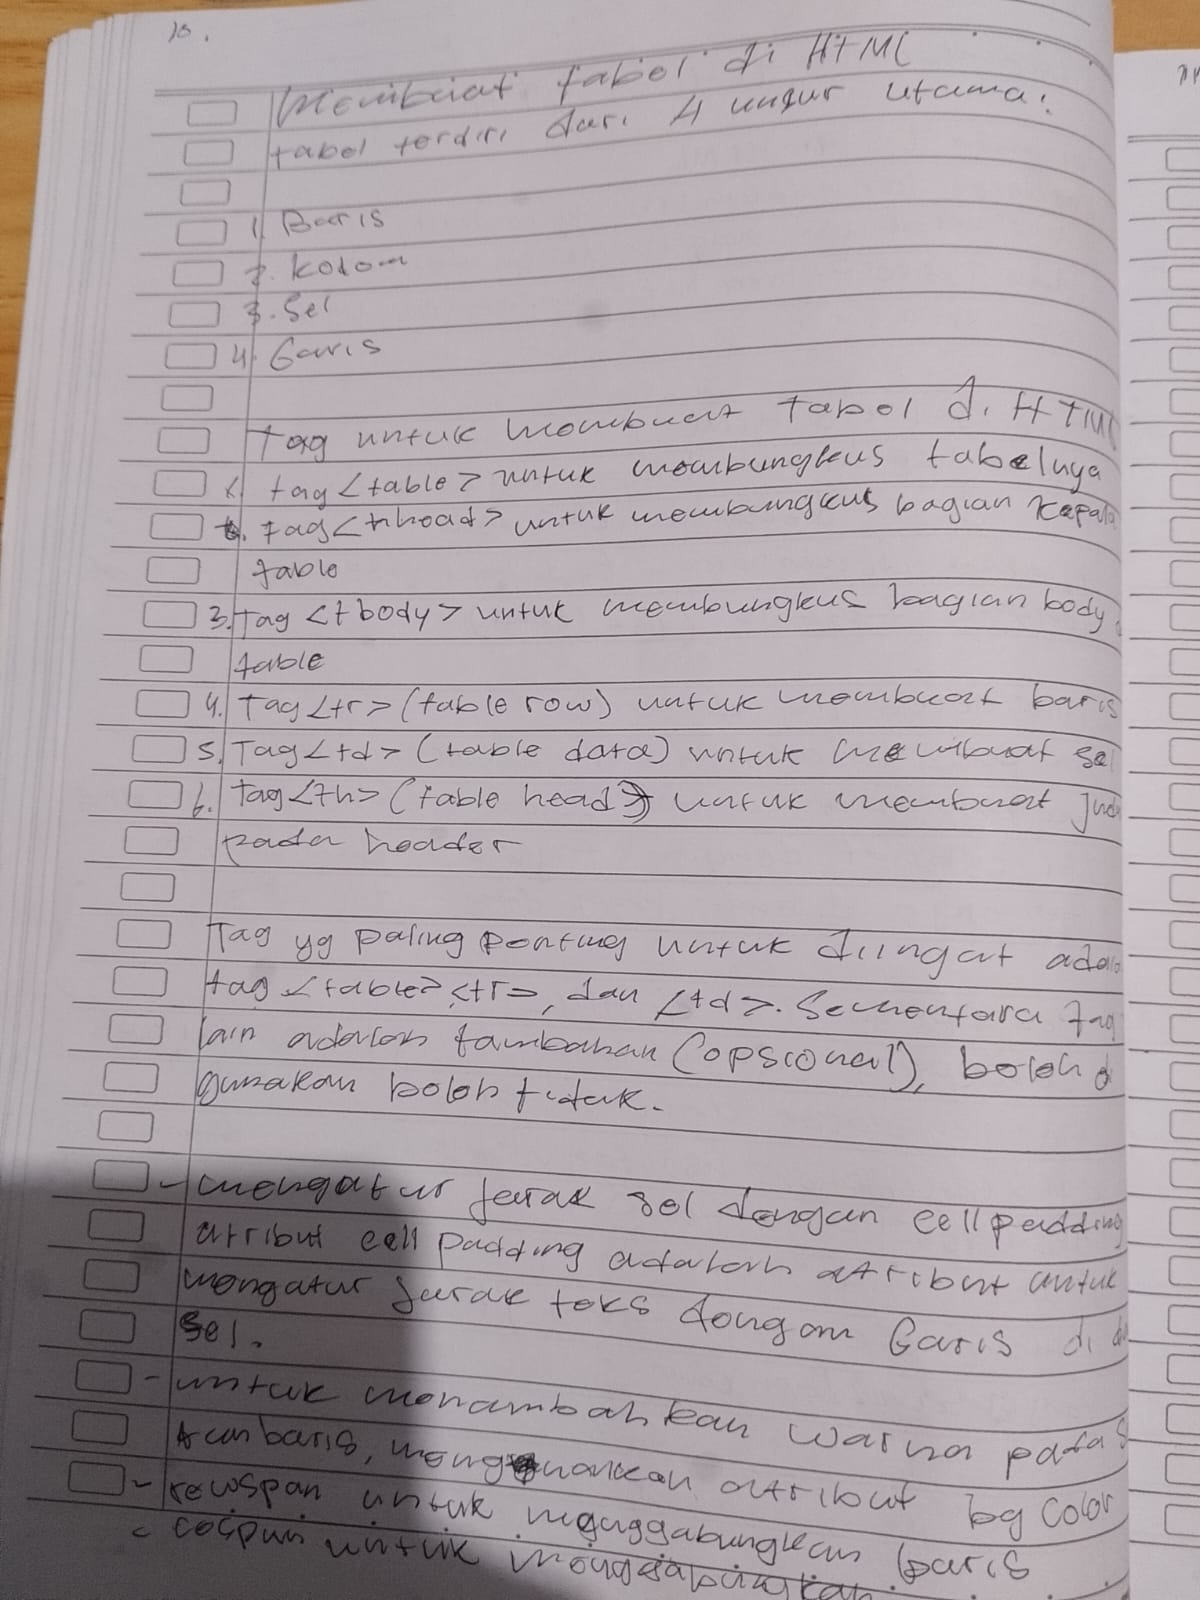 13.
Membuat tabel di HTML
tabel terdiri dari 4 unsur utama:
1. Baris
2. Kolom
3. Sel
4. Garis
Tag untuk membuat Tabel di HTML
1. tag <table> untuk membungkus tabelnya
2. tag <thead> untuk membungkus bagian kepala
table
3. Tag <tbody> untuk membungkus bagian body
table
4. Tag <tr> (table row) untuk membuat baris
5. Tag <td> (table data) untuk membuat sel
6. Tag <th> (table head) untuk membuat Jud
pada header
Tag yg paling penting untuk diingat adala
tag <table>, <tr>, dan <td>. Sementara tag
lain adalah tambahan (opsional), boleh di
gunakan boleh tidak.
- mengatur jarak sel dengan cellpadding
atribut cell padding adalah atribut untuk
mengatur jarak teks dengan Garis di da
sel.
- untuk menambahkan warna pada s
dan baris, menggunakan atribut bg color
- rowspan untuk menggabungkan baris
- colspan untuk menggabungkan